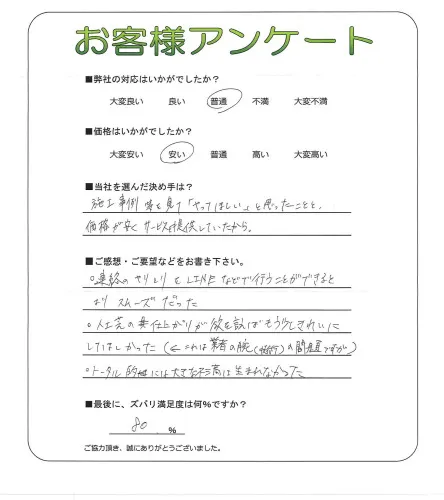 お客様アンケート
■弊社の対応はいかがでしたか？
大変良い 良い 普通 不満 大変不満
■価格はいかがでしたか？
大変安い 安い 普通 高い 大変高い
■当社を選んだ決め手は？
施工事例等を見て「やってほしい」と思ったことと、
価格が安くサービスを提供していたから。
■ご感想・ご要望などをお書き下さい。
○連絡のやりとりをLINEなどで行うことができると
よりスムーズだった
○人工芝の 仕上がりが欲を言えばもう少しきれいに
してほしかった(←これは業者の腕 の問題ですが)
○トータル的には大きな不満は生まれなかった
■最後に、ズバリ満足度は何%ですか？
80 %
ご協力頂き、誠にありがとうございました。